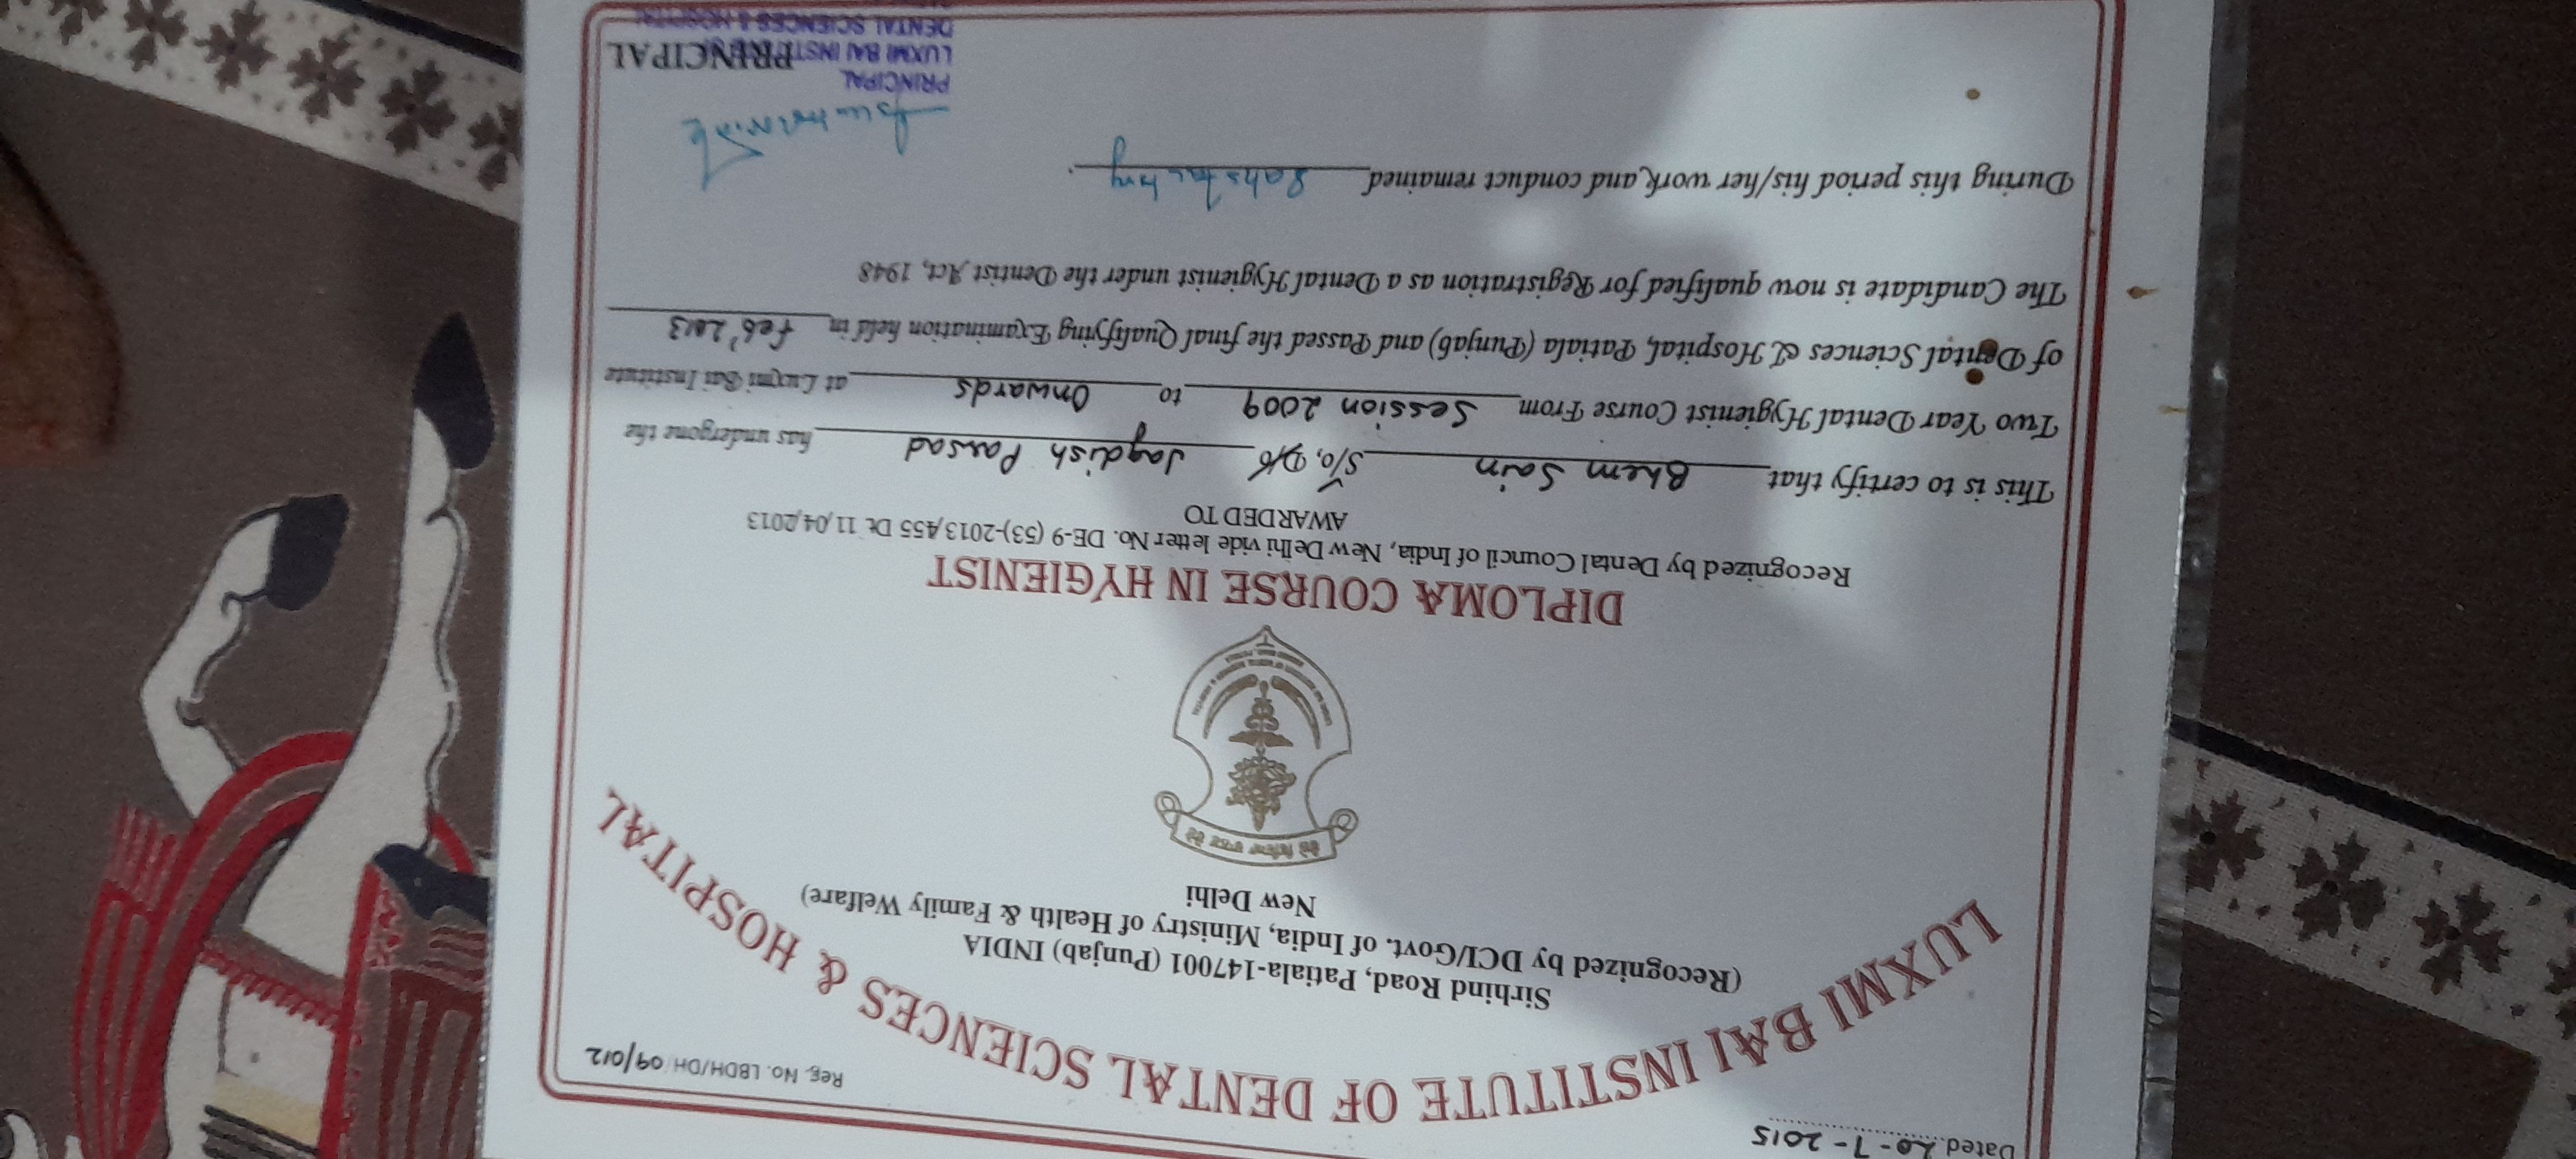 Reg. No. LBDH/DH/09/012
Dated 20-7-2015
LUXMI BAI INSTITUTE OF DENTAL SCIENCES & HOSPITAL
Sirhind Road, Patiala-147001 (Punjab) INDIA
(Recognized by DCI/Govt. of India, Ministry of Health & Family Welfare)
New Delhi
DIPLOMA COURSE IN HYGIENIST
Recognized by Dental Council of India, New Delhi vide letter No. DE-9 (53)-2013/455 Dt. 11/04/2013
AWARDED TO
This is to certify that Bhem Sain S/o, D/o Jagdish Parsad has undergone the
Two Year Dental Hygienist Course From Session 2009 to Onwards at Luxmi Bai Institute
of Dental Sciences & Hospital, Patiala (Punjab) and Passed the final Qualifying Examination held in feb'2013
The Candidate is now qualified for Registration as a Dental Hygienist under the Dentist Act, 1948
During this period his/her work and conduct remained
PRINCIPAL
PRINCIPAL
LUXMI BAI INST
DENTAL SCIENCES & HOSPITAL